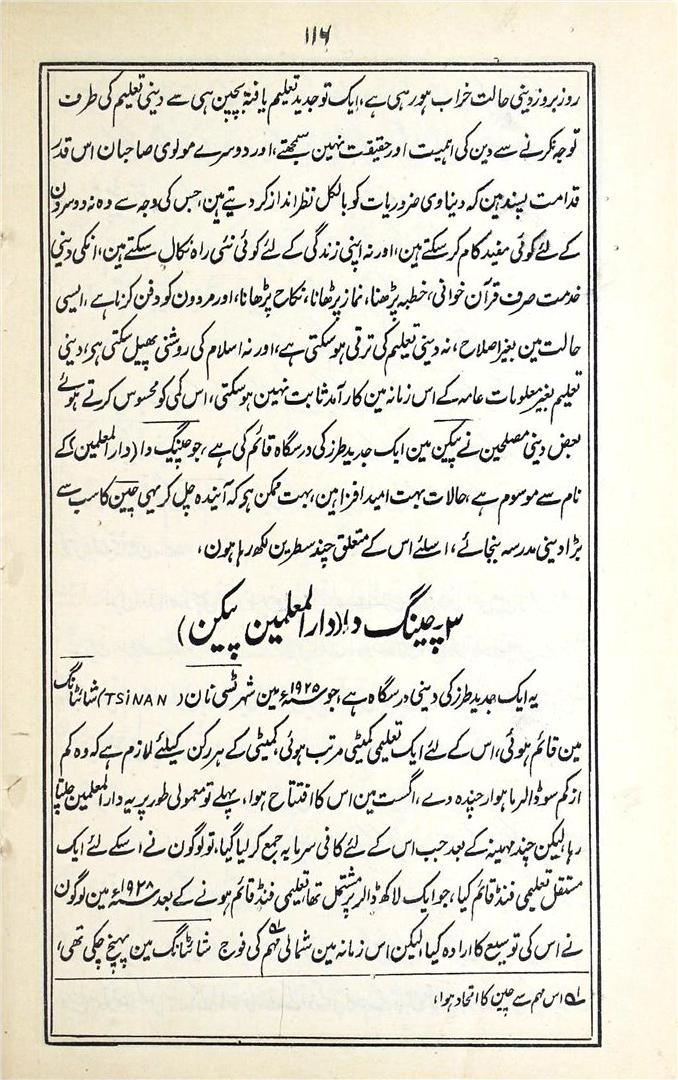 ۱۱۶
روز بروز دینی حالت خراب ہو رہی ہے، ایک تو جدید تعلیم یافتہ بچپن ہی سے دینی تعلیم کی طرف
توجہ نکرنے سے دین کی اہمیت اور حقیقت نہین سمجھتے، اور دوسرے مولوی صاحبان اس قدر
قدامت پسند ہین کہ دنیاوی ضروریات کو بالکل نظر انداز کر دیتے ہین، جس کی وجہ سے وہ نہ دوسرون
کے لئے کوئی مفید کام کر سکتے ہین، اور نہ اپنی زندگی کے لئے کوئی نئی راہ نکال سکتے ہین، انکی دینی
خدمت صرف قرآن خوانی، خطبہ پڑھنا، نماز پڑھانا، نکاح پڑھانا، اور مردون کو دفن کرنا ہے، ایسی
حالت مین بغیر اصلاح، نہ دینی تعلیم کی ترقی ہو سکتی ہے، اور نہ اسلام کی روشنی پھیل سکتی ہی، دینی
تعلیم بغیر معلومات عامہ کے اس زمانہ مین کارآمد ثابت نہین ہو سکتی، اس کمی کو محسوس کرتے ہوئے
بعض دینی مصلحین نے پیکن مین ایک جدید طرز کی درسگاہ قائم کی ہے، جو چینگ دا (دار المعلمین) کے
نام سے موسوم ہے، حالات بہت امید افزا ہین، بہت ممکن ہو کہ آیندہ چل کر یہی چین کا سب سے
بڑا دینی مدرسہ بنجائے، اسلئے اس کے متعلق چند سطرین لکھ رہا ہون،
۳۔ چینگ دا (دار المعلمین پیکن)
یہ ایک جدید طرز کی دینی درسگاہ ہے، جو ۱۹۲۵ء مین شہر تسی نان (TSINAN) شانٹانگ
مین قائم ہوئی، اس کے لئے ایک تعلیمی کمیٹی مرتب ہوئی، کمیٹی کے ہر رکن کیلئے لازم ہے کہ وہ کم
از کم سو ڈالر ماہوار چندہ دے، اگست مین اس کا افتتاح ہوا، پہلے تو معمولی طور پر یہ دار المعلمین چلتا
رہا لیکن چند مہینہ کے بعد جب اس کے لئے کافی سرمایہ جمع کر لیا گیا، تو لوگون نے اسکے لئے ایک
مستقل تعلیمی فنڈ قائم کیا، جو ایک لاکھ ڈالر پر مشتمل تھا، تعلیمی فنڈ قائم ہونے کے بعد ۱۹۲۸ء مین لوگون
نے اس کی توسیع کا ارادہ کیا، لیکن اس زمانہ مین شمالی مہم۱؎ کی فوج شانٹانگ مین پہنچ چکی تھی،
۱؎ اس مہم سے چین کا اتحاد ہوا،